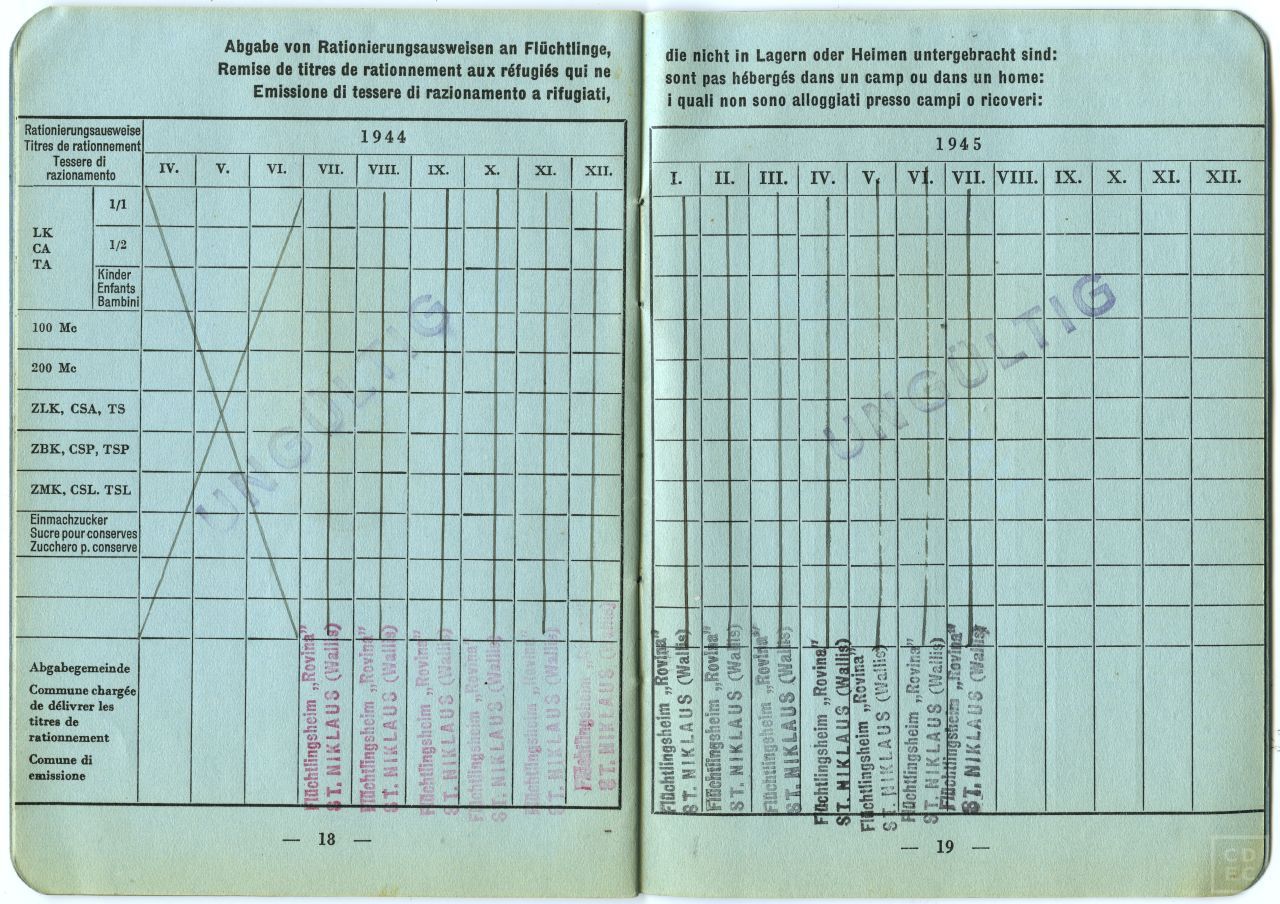 Abgabe von Rationierungsausweisen an Flüchtlinge,
Remise de titres de rationnement aux réfugiés qui ne
Emissione di tessere di razionamento a rifugiati,
Rationierungsausweise
Titres de rationnement
Tessere di
razionamento
1944
IV. V. VI. VII. VIII. IX. X. XI. XII.
LK
CA
TA
1/1
1/2
Kinder
Enfants
Bambini
100 Mc
200 Mc
ZLK, CSA, TS
ZBK, CSP, TSP
ZMK, CSL. TSL
Einmachzucker
Sucre pour conserves
Zucchero p. conserve
UNGÜLTIG
Abgabegemeinde
Commune chargée
de délivrer les
titres de
rationnement
Comune di
emissione
Flüchtlingsheim „Rovina"
ST. NIKLAUS (Wallis)
Flüchtlingsheim „Rovina"
ST. NIKLAUS (Wallis)
Flüchtlingsheim „Rovina"
ST. NIKLAUS (Wallis)
Flüchtlingsheim „Rovina"
ST. NIKLAUS (Wallis)
Flüchtlingsheim „Rovina"
ST. NIKLAUS (Wallis)
Flüchtlingsheim
ST. NIKLAUS (Wallis)
— 18 —
die nicht in Lagern oder Heimen untergebracht sind:
sont pas hébergés dans un camp ou dans un home:
i quali non sono alloggiati presso campi o ricoveri:
1945
I. II. III. IV. V. VI. VII. VIII. IX. X. XI. XII.
UNGÜLTIG
Flüchtlingsheim „Rovina"
ST. NIKLAUS (Wallis)
Flüchtlingsheim „Rovina"
ST. NIKLAUS (Wallis)
Flüchtlingsheim „Rovina"
ST. NIKLAUS (Wallis)
Flüchtlingsheim „Rovina"
ST. NIKLAUS (Wallis)
Flüchtlingsheim „Rovina"
ST. NIKLAUS (Wallis)
Flüchtlingsheim „Rovina"
ST. NIKLAUS (Wallis)
Flüchtlingsheim „Rovina"
ST. NIKLAUS (Wallis)
— 19 —
CD
EC